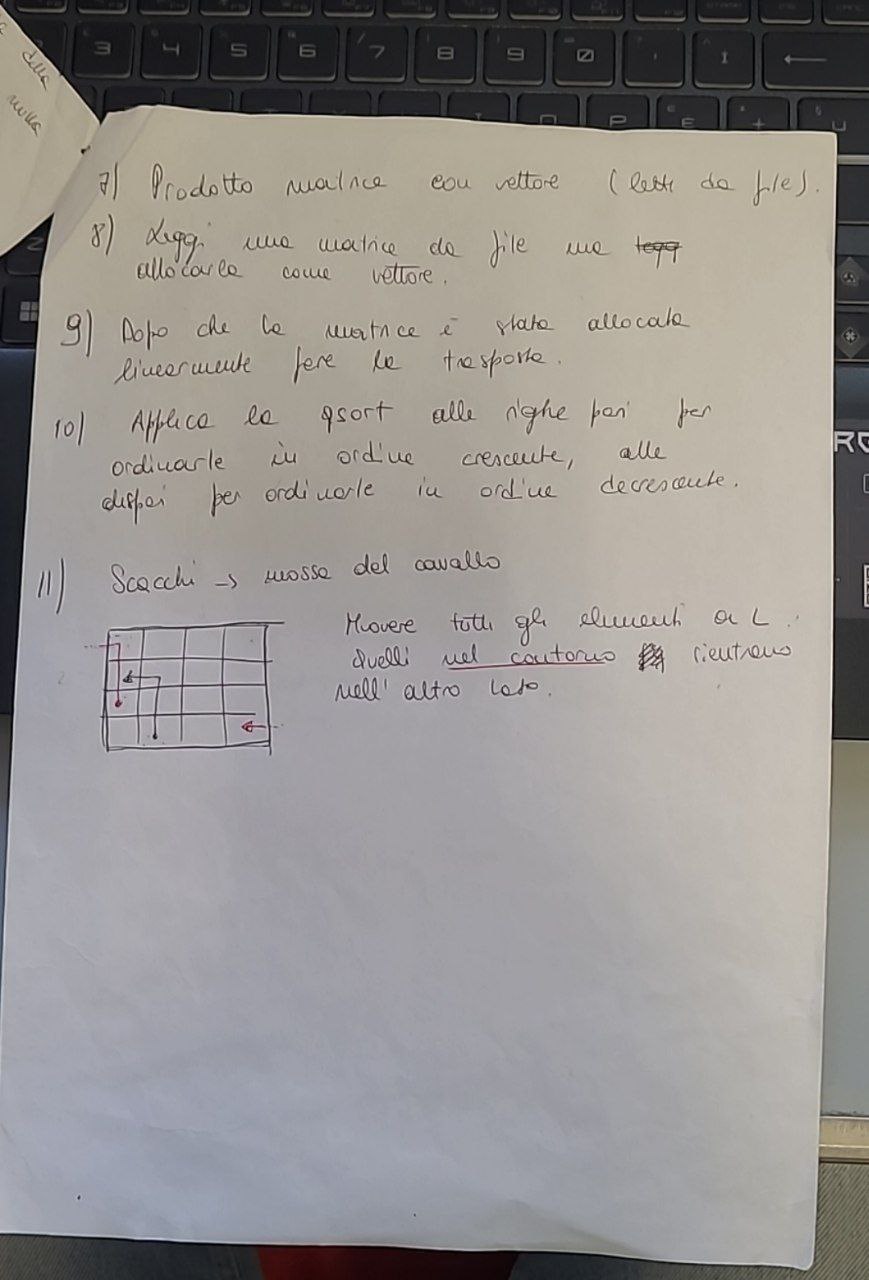 della
nulla
3 4 5 6 7 8 9 0 ' ì
O P È + Ù
Z
7) Prodotto matrice con vettore (letti da file).
8) Leggi una matrice da file ma
allocarla come vettore.
9) Dopo che la matrice è stata allocata
linearmente fare la trasposta.
10) Applica la qsort alle righe pari per
ordinarle in ordine crescente, alle
dispari per ordinarle in ordine decrescente.
11) Scacchi → mossa del cavallo
Muovere tutti gli elementi a L.
Quelli nel contorno rientrano
nell'altro lato.
RO